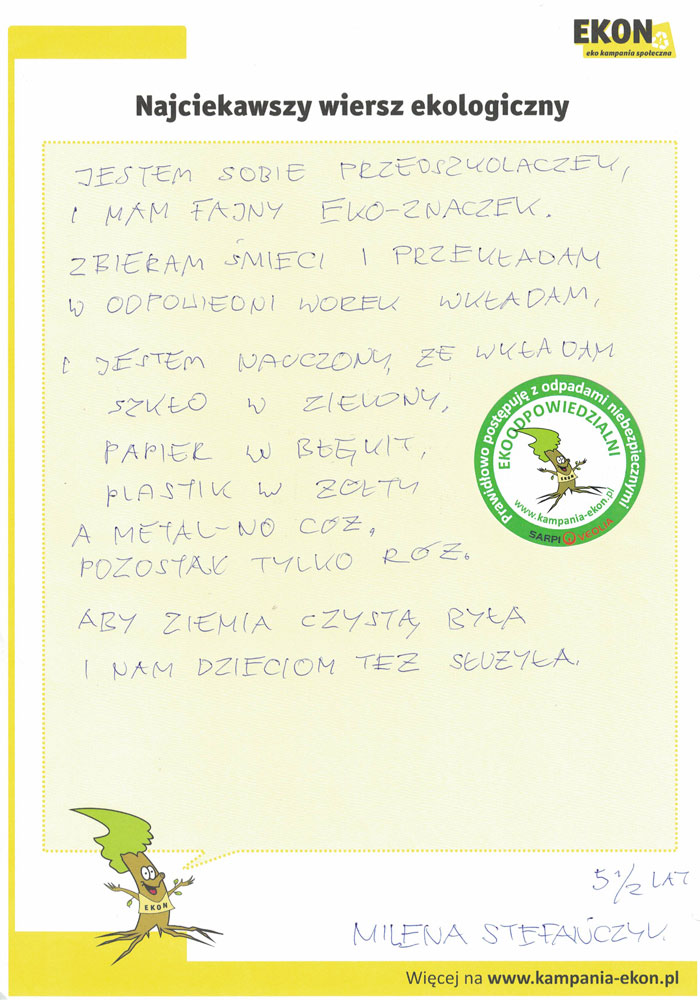 EKON
eko kampania społeczna
Najciekawszy wiersz ekologiczny
JESTEM SOBIE PRZEDSZKOLACZEK,
I MAM FAJNY EKO-ZNACZEK.
ZBIERAM ŚMIECI I PRZEKŁADAM
W ODPOWIEDNI WOREK WKŁADAM,
I JESTEM NAUCZONY, ZE WKŁADAM
SZKŁO W ZIELONY,
PAPIER W BŁĘKIT,
PLASTIK W ŻOŁTY
A METAL-NO CÓZ,
POZOSTAK TYLKO RÓZ.
ABY ZIEMIA CZYSTĄ BYŁA
I NAM DZIECIOM TEZ SŁUZYŁA.
Prawidłowo postępuję z odpadami niebezpiecznymi
EKOODPOWIEDZIALNI
EKON
www.kampania-ekon.pl
SARPI VEOLIA
EKON
5 1/2 LAT
MILENA STEFAŃCZYK.
Więcej na www.kampania-ekon.pl